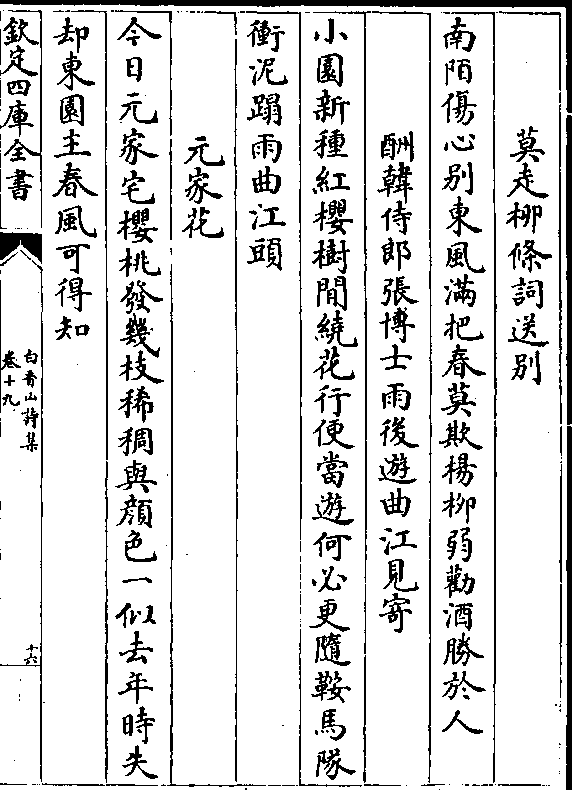 莫走柳條詞送别
南陌傷心别東風滿把春莫欺楊柳弱勸酒勝於人
酬韓侍郎張博士雨後遊曲江見寄
小園新種紅櫻樹閒繞花行便當遊何必更隨鞍馬隊
衝泥蹋雨曲江頭
元家花
今日元家宅櫻桃發幾枝稀稠與顔色一似去年時失
却東園主春風可得知
欽定四庫全書
白香山詩集
卷十九
十六